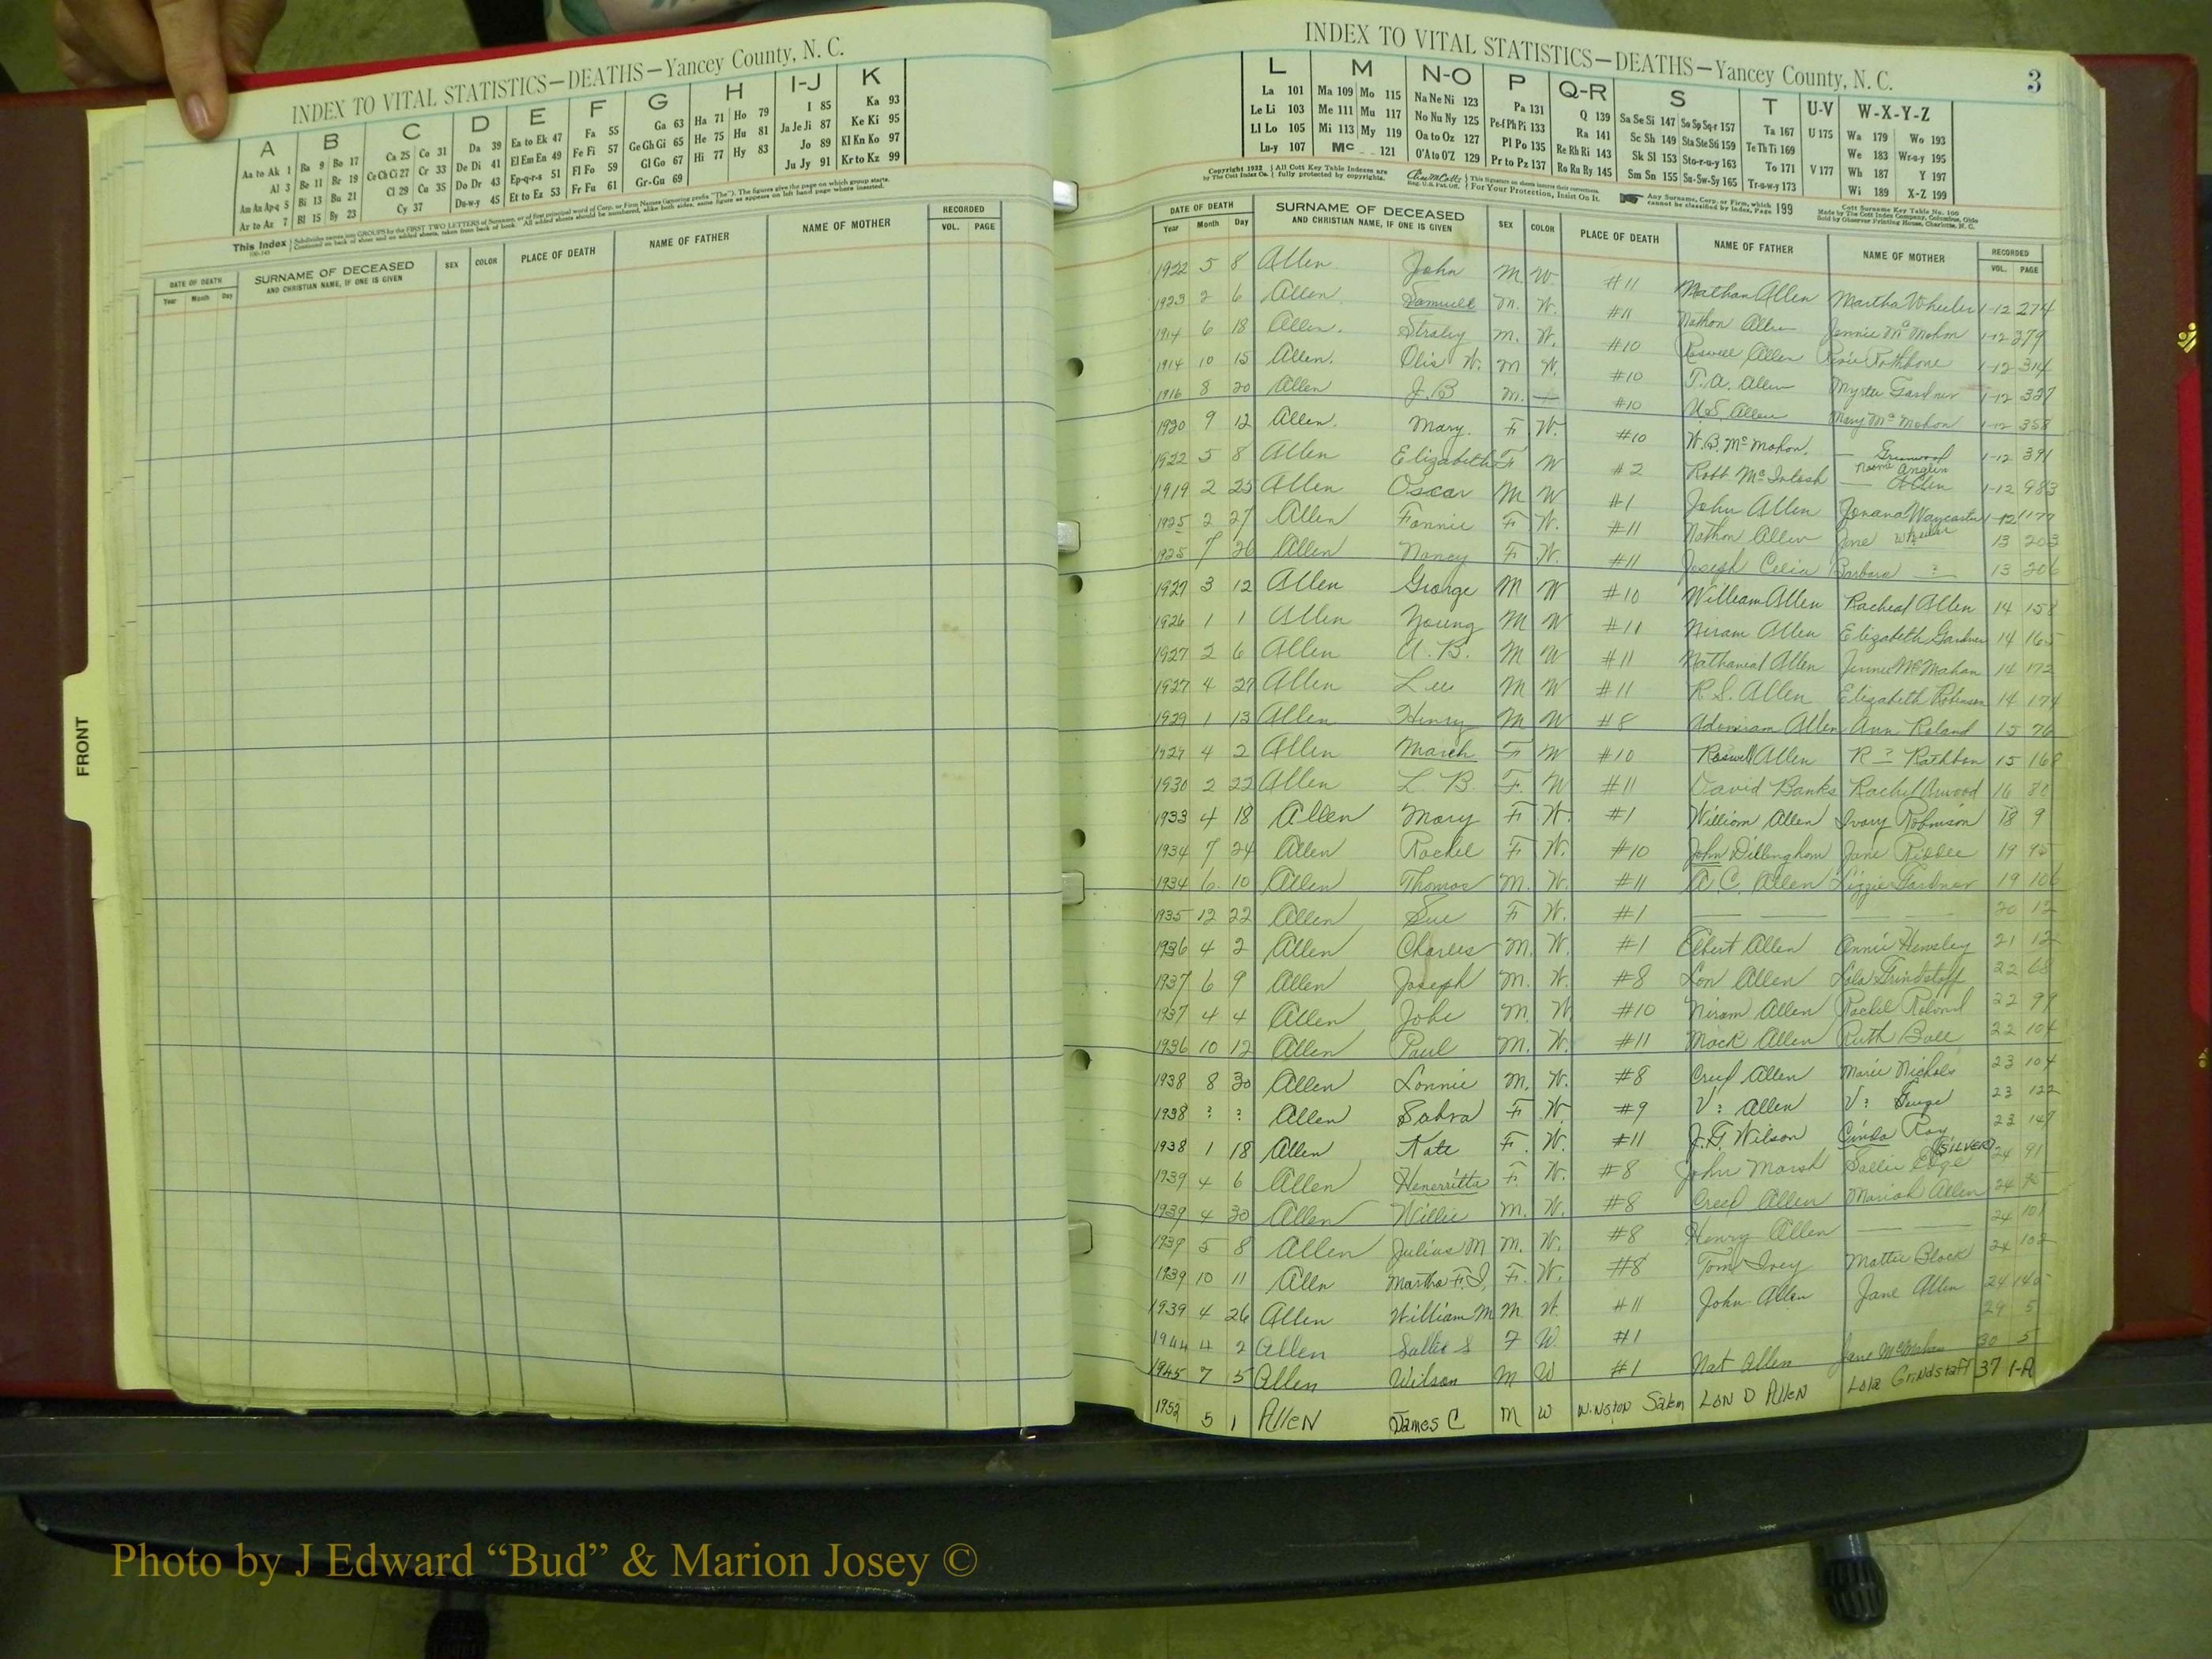 INDEX TO VITAL STATISTICS—DEATHS—Yancey County, N. C.
A B C D E F G H I-J K
Aa to Ak 1 Ba 9 Bo 17 Ca 25 Co 31 Da 39 Ea to Ek 47 Fa 55 Ga 63 Ha 71 Ho 79 I 85 Ka 93
Al 3 Be 11 Br 19 Ce Ch Ci 27 Cr 33 De Di 41 El Em En 49 Fe Fi 57 Ge Gh Gi 65 He 75 Hu 81 Ja Je Ji 87 Ke Ki 95
Am An Ap-q 5 Bi 13 Bu 21 Cl 29 Cu 35 Do Dr 43 Ep-q-r-s 51 Fl Fo 59 Gl Go 67 Hi 77 Hy 83 Jo 89 Kl Kn Ko 97
Ar to Az 7 Bl 15 By 23 Cy 37 Du-w-y 45 Et to Ez 53 Fr Fu 61 Gr-Gu 69 Ju Jy 91 Kr to Kz 99
This Index
DATE OF DEATH SURNAME OF DECEASED SEX COLOR PLACE OF DEATH NAME OF FATHER NAME OF MOTHER RECORDED
Year Month Day AND CHRISTIAN NAME, IF ONE IS GIVEN VOL. PAGE
FRONT
INDEX TO VITAL STATISTICS—DEATHS—Yancey County, N. C. 3
L M N-O P Q-R S T U-V W-X-Y-Z
La 101 Ma 109 Mo 115 Na Ne Ni 123 Pa 131 Q 139 Sa Se Si 147 So Sp Sq-r 157 Ta 167 U 175 Wa 179 Wo 193
Le Li 103 Me 111 Mu 117 No Nu Ny 125 Pe-f Ph Pi 133 Ra 141 Sc Sh 149 Sta Ste Sti 159 Te Th Ti 169 We 183 Wr-u-y 195
Ll Lo 105 Mi 113 My 119 Oa to Oz 127 Pl Po 135 Re Rh Ri 143 Sk Sl 153 Sto-r-u-y 163 To 171 V 177 Wh 187 Y 197
Lu-y 107 Mc 121 O'A to O'Z 129 Pr to Pz 137 Ro Ru Ry 145 Sm Sn 155 Su-Sw-Sy 165 Tr-u-w-y 173 Wi 189 X-Z 199
Copyright 1932 by The Cott Index Co. All Cott Key Table Indexes are fully protected by copyrights. For Your Protection, Insist On It. Any Surname, Corp. or Firm, which cannot be classified by Index, Page 199 Cott Surname Key Table No. 100 Made by The Cott Index Company, Columbus, Ohio Sold by Observer Printing House, Charlotte, N. C.
DATE OF DEATH SURNAME OF DECEASED SEX COLOR PLACE OF DEATH NAME OF FATHER NAME OF MOTHER RECORDED
Year Month Day AND CHRISTIAN NAME, IF ONE IS GIVEN VOL. PAGE
1922 5 8 Allen John M W. #11 Nathan Allen Martha Wheeler 1-12 274
1923 2 6 Allen Samuel M. W. #11 Nathon Allen Jennie McMahon 1-12 279
1914 6 18 Allen. Straley M. W. #10 Roswell Allen Rosie Rathbone 1-12 314
1914 10 15 Allen. Olis W. M W. #10 T. A. Allen Myrtle Gardner 1-12 327
1916 8 20 Allen J. B M. — #10 U.S. Allen Mary McMahon 1-12 358
1920 9 12 Allen. Mary. F W. #10 W. B. McMahon. — Greenwood 1-12 391
1922 5 8 Allen Elizabeth F W #2 Robt. McIntosh Naomi Anglin 1-12 983
1919 2 25 Allen Oscar M W #1 John Allen Waycaster 1-12 1177
1925 2 27 Allen Fannie F W. #11 Nathon Allen Jane Wheeler 13 203
1925 7 26 Allen Nancy F W. #11 Joseph Celia Barbara ? 13 206
1927 3 12 Allen George M W #10 William Allen Racheal Allen 14 158
1926 1 1 Allen Young M W #11 Niram Allen Elizabeth Gardner 14 165
1927 2 6 Allen U. B. M W #11 Nathanial Allen Jennie McMahan 14 172
1927 4 27 Allen Lee M W #11 R S. Allen Elizabeth Robinson 14 174
1929 1 13 Allen Henry M W #8 Adoniram Allen Ann Roland 15 76
1929 4 2 Allen March F W #10 Roswell Allen R ? Rathbon 15 168
1930 2 22 Allen L. B. F. W #11 David Banks Rachel Arwood 16 80
1933 4 18 Allen Mary F W. #1 William Allen Ivory Robinson 18 9
1934 7 24 Allen Rachel F W. #10 John Dillingham Jane Riddle 19 95
1934 6 10 Allen Thomas M. W. #11 A. C. Allen Lizzie Gardner 19 106
1935 12 22 Allen Sue F W. #1 — — — 20 12
1936 4 2 Allen Charles M. W. #1 Elbert Allen Annie Hensley 21 12
1937 6 9 Allen Joseph M. W. #8 Lon Allen Lola Grindstaff 22 68
1937 4 4 Allen John M. W #10 Niram Allen Rachel Roland 22 99
1936 10 12 Allen Paul M. W. #11 Mack Allen Ruth Ball 22 104
1938 8 30 Allen Lonnie M. W. #8 Creed Allen Marie Nichols 23 104
1938 ? ? Allen Sahra F W #9 V? Allen V? Gouge 23 122
1938 1 18 Allen Kate F. W. #11 J. F. Wilson Cinda Ray 23 147
1939 4 6 Allen Henerritta F. W. #8 John Marsh Sallie Edge (SILVER) 24 91
1939 4 30 Allen Willie M. W. #8 Creed Allen Mariah Allen 24 95
1939 5 8 Allen Julius M M. W. #8 Henry Allen — — 24 101
1939 10 11 Allen Martha F. I. F. W. #8 Tom Ivey Mattie Black 24 102
1939 4 26 Allen William M M. W. #11 John Allen Jane Allen 24 145
1944 4 2 Allen Sallie S F W. #1 29 5
1945 7 5 Allen Wilson M W #1 Nat Allen Jane McMahan 30 5
1952 5 1 Allen James C M W Winston Salem Lon D Allen Lola Grindstaff 37 1-A
Photo by J Edward “Bud” & Marion Josey ©